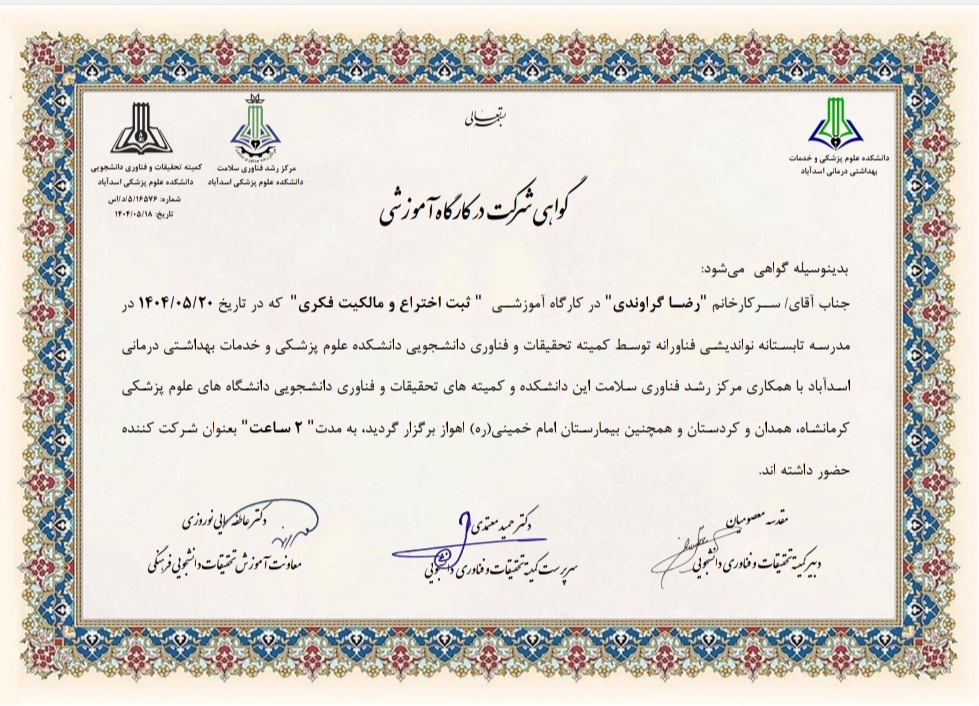 بسمه تعالی
دانشکده علوم پزشکی و خدمات
بهداشتی درمانی اسدآباد
مرکز رشد فناوری سلامت
دانشکده علوم پزشکی اسدآباد
کمیته تحقیقات و فناوری دانشجویی
دانشکده علوم پزشکی اسدآباد
شماره: ۵/۱۶۵۷۶/د/اس
تاریخ: ۱۴۰۴/۰۵/۱۸
گواهی شرکت در کارگاه آموزشی
بدینوسیله گواهی می‌شود:
جناب آقای/ سرکارخانم "رضا گراوندی" در کارگاه آموزشی " ثبت اختراع و مالکیت فکری" که در تاریخ ۱۴۰۴/۰۵/۲۰ در
مدرسه تابستانه نواندیشی فناورانه توسط کمیته تحقیقات و فناوری دانشجویی دانشکده علوم پزشکی و خدمات بهداشتی درمانی
اسدآباد با همکاری مرکز رشد فناوری سلامت این دانشکده و کمیته های تحقیقات و فناوری دانشجویی دانشگاه های علوم پزشکی
کرمانشاه، همدان و کردستان و همچنین بیمارستان امام خمینی(ره) اهواز برگزار گردید، به مدت" ۲ ساعت" بعنوان شرکت کننده
حضور داشته اند.
مقدسه معصومیان
دبیر کمیته تحقیقات و فناوری دانشجویی
دکتر حمید معتمدی
سرپرست کمیته تحقیقات و فناوری دانشجویی
دکتر عاطفه ایی نوروزی
معاونت آموزش تحقیقات دانشجویی فرهنگی